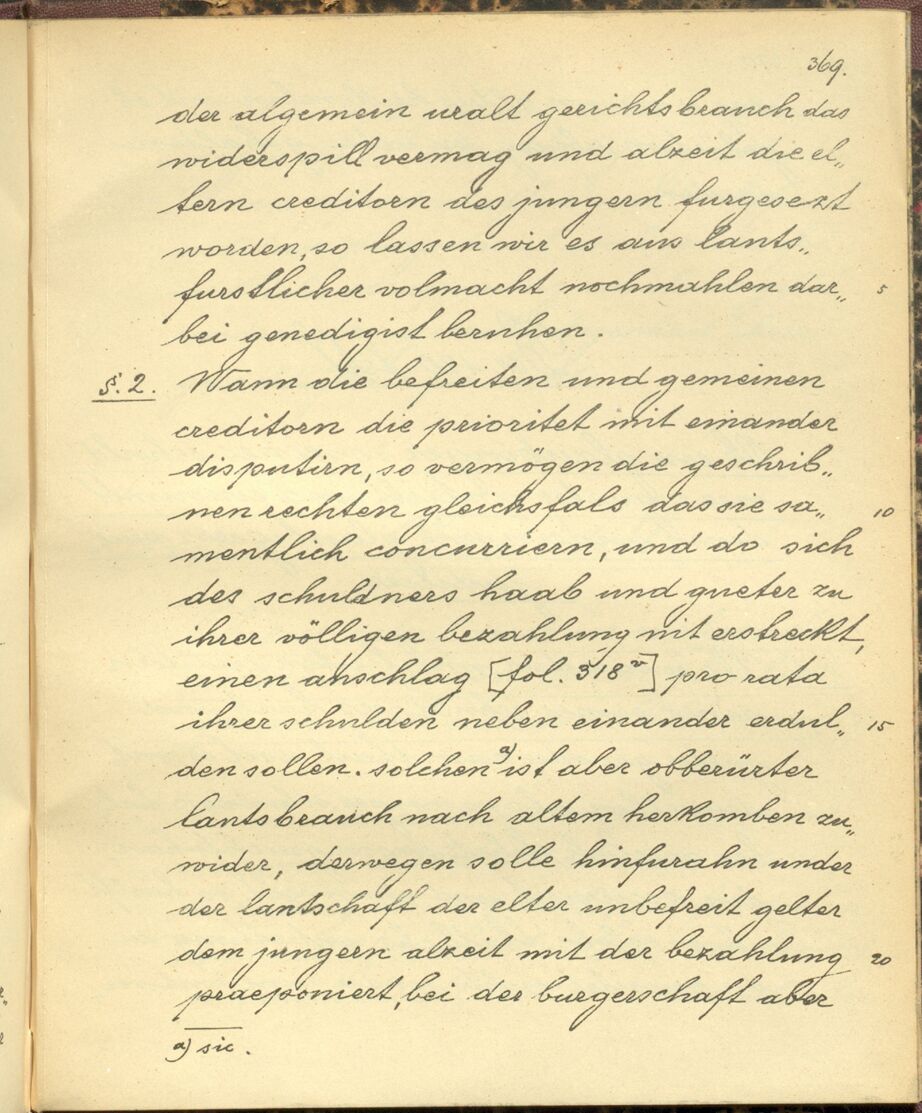 369.
der algemein uralt gerichtsbrauch das
widerspill vermag und alzeit die el„
tern creditorn des jungern furgesezt
worden, so lassen wir es aus lants„
furstlicher volmacht nochmahlen dar„ 5
bei genedigist beruhen.
§. 2. Wann die befreiten und gemeinen
creditorn die prioritet mit einander
disputirn, so vermögen die geschrib„
nen rechten gleichsfals das sie sa„ 10
mentlich concurriern, und do sich
des schuldners haab und gueter zu
ihrer völligen bezahlung nit erstreckt,
einen anschlag [fol. 318ᵛ] pro rata
ihrer schulden neben einander erdul„ 15
den sollen. solchen a) ist aber obberürter
lantsbrauch nach altem herkomben zu„
wider, derwegen solle hinfurahn under
der lantschaft der elter unbefreit gelter
dem jungern alzeit mit der bezahlung 20
praeponiert, bei der burgerschaft aber
a) sic.